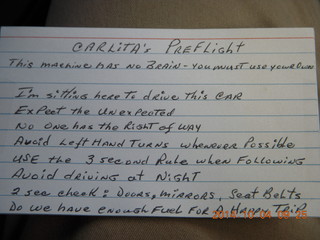 CARLITA's PREFlight
This machine has no BRAIN - you must use your own
I'm sitting here to drive this CAR
Expect the Unexpected
No one has the Right of way
Avoid Left Hand Turns whenever Possible
USE the 3 second Rule when Following
Avoid driving at Night
2 sec check: Doors, mirrors, Seat Belts
Do we have enough Fuel for A Happy Trip